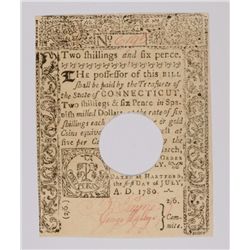 No.
Two shillings and six pence.
THE possessor of this BILL
shall be paid by the Treasurer of
the State of CONNECTICUT,
Two shillings & six Pence in Spa-
nish milled Dollars, at the rate of six
shillings each or gold
Coins equival
five per Ce
ORDER
LY,
DATED at HARTFORD,
the first DAY of JULY,
A. D. 1780.
2s6.
(2s6)
Com-
mittee.